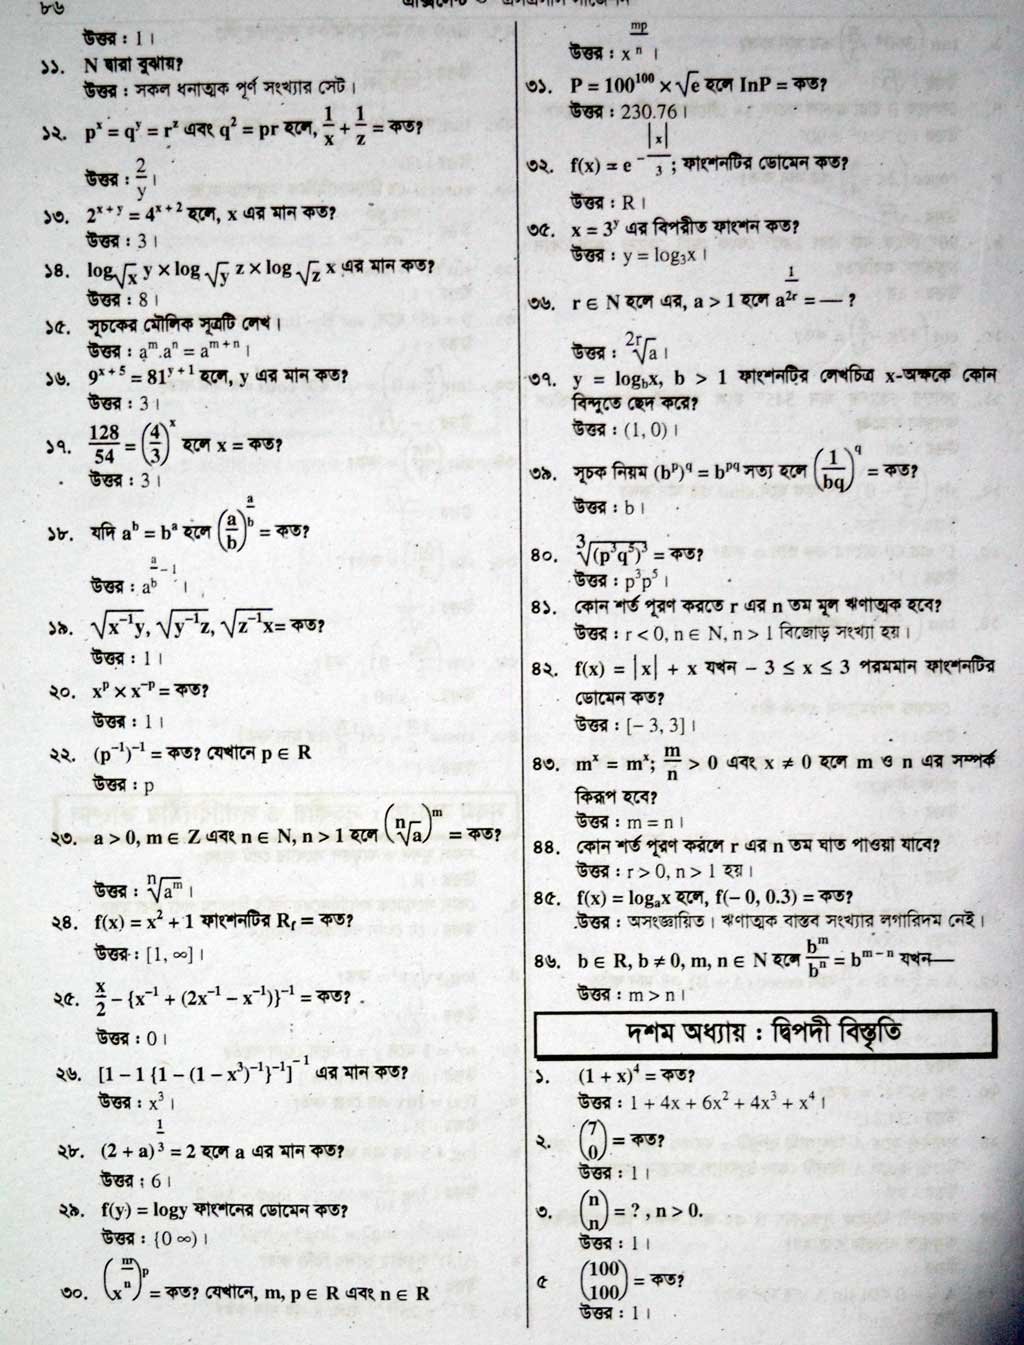 ৮৬
উত্তর : 1।
১১. N দ্বারা বুঝায়?
উত্তর : সকল ধনাত্মক পূর্ণ সংখ্যার সেট।
১২. pˣ = qʸ = rᶻ এবং q² = pr হলে, 1/x + 1/z = কত?
উত্তর : 2/y।
১৩. 2ˣ⁺ʸ = 4ˣ⁺² হলে, x এর মান কত?
উত্তর : 3।
১৪. log√x y × log√y z × log√z x এর মান কত?
উত্তর : 8।
১৫. সূচকের মৌলিক সূত্রটি লেখ।
উত্তর : aᵐ.aⁿ = aᵐ⁺ⁿ।
১৬. 9ˣ⁺⁵ = 81ʸ⁺¹ হলে, y এর মান কত?
উত্তর : 3।
১৭. 128/54 = (4/3)ˣ হলে x = কত?
উত্তর : 3।
১৮. যদি aᵇ = bᵃ হলে (a/b)^(a/b) = কত?
উত্তর : a^(a/b – 1)।
১৯. √(x⁻¹y), √(y⁻¹z), √(z⁻¹x) = কত?
উত্তর : 1।
২০. xᵖ × x⁻ᵖ = কত?
উত্তর : 1।
২২. (p⁻¹)⁻¹ = কত? যেখানে p ∈ R
উত্তর : p
২৩. a > 0, m ∈ Z এবং n ∈ N, n > 1 হলে (ⁿ√a)ᵐ = কত?
উত্তর : ⁿ√(aᵐ)।
২৪. f(x) = x² + 1 ফাংশনটির R_f = কত?
উত্তর : [1, ∞]।
২৫. x/2 – {x⁻¹ + (2x⁻¹ – x⁻¹)}⁻¹ = কত?
উত্তর : 0।
২৬. [1 – 1 {1 – (1 – x³)⁻¹}⁻¹]⁻¹ এর মান কত?
উত্তর : x³।
২৮. (2 + a)^(1/3) = 2 হলে a এর মান কত?
উত্তর ; 6।
২৯. f(y) = logy ফাংশনের ডোমেন কত?
উত্তর : {0 ∞)।
৩০. (x^(m/n))^p = কত? যেখানে, m, p ∈ R এবং n ∈ R
উত্তর : x^(mp/n) ।
৩১. P = 100¹⁰⁰ × √e হলে InP = কত?
উত্তর : 230.76।
৩২. f(x) = e^(–|x|/3) ; ফাংশনটির ডোমেন কত?
উত্তর : R।
৩৫. x = 3ʸ এর বিপরীত ফাংশন কত?
উত্তর : y = log₃x।
৩৬. r ∈ N হলে এর, a > 1 হলে a^(1/2r) = — ?
উত্তর : ²ʳ√a।
৩৭. y = log_b x, b > 1 ফাংশনটির লেখচিত্র x-অক্ষকে কোন
বিন্দুতে ছেদ করে?
উত্তর : (1, 0)।
৩৯. সূচক নিয়ম (bᵖ)^q = b^(pq) সত্য হলে (1/bq)^q = কত?
উত্তর : b।
৪০. ³√((p³q⁵)³) = কত?
উত্তর : p³p⁵।
৪১. কোন শর্ত পূরণ করতে r এর n তম মূল ঋণাত্মক হবে?
উত্তর : r < 0, n ∈ N, n > 1 বিজোড় সংখ্যা হয়।
৪২. f(x) = |x| + x যখন – 3 ≤ x ≤ 3 পরমমান ফাংশনটির
ডোমেন কত?
উত্তর : [– 3, 3]।
৪৩. mˣ = mˣ; m/n > 0 এবং x ≠ 0 হলে m ও n এর সম্পর্ক
কিরূপ হবে?
উত্তর : m = n।
৪৪. কোন শর্ত পূরণ করলে r এর n তম ঘাত পাওয়া যাবে?
উত্তর : r > 0, n > 1 হয়।
৪৫. f(x) = logₐx হলে, f(– 0, 0.3) = কত?
উত্তর : অসংজ্ঞায়িত। ঋণাত্মক বাস্তব সংখ্যার লগারিদম নেই।
৪৬. b ∈ R, b ≠ 0, m, n ∈ N হলে bᵐ/bⁿ = bᵐ⁻ⁿ যখন—
উত্তর : m > n।
দশম অধ্যায় : দ্বিপদী বিস্তৃতি
১. (1 + x)⁴ = কত?
উত্তর : 1 + 4x + 6x² + 4x³ + x⁴।
২. (7 0) = কত?
উত্তর : 1।
৩. (n n) = ? , n > 0.
উত্তর : 1।
৫ (100 100) = কত?
উত্তর : 1।